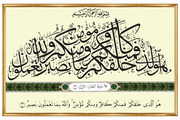 بسم الله الرحمن الرحيم
هو الذي خلقكم فمنكم كافر ومنكم مؤمن والله بما تعملون بصير
هُوَ الَّذِي خَلَقَكُمْ فَمِنكُمْ كَافِرٌ وَمِنكُم مُّؤْمِنٌ وَاللَّهُ بِمَا تَعْمَلُونَ بَصِيرٌ